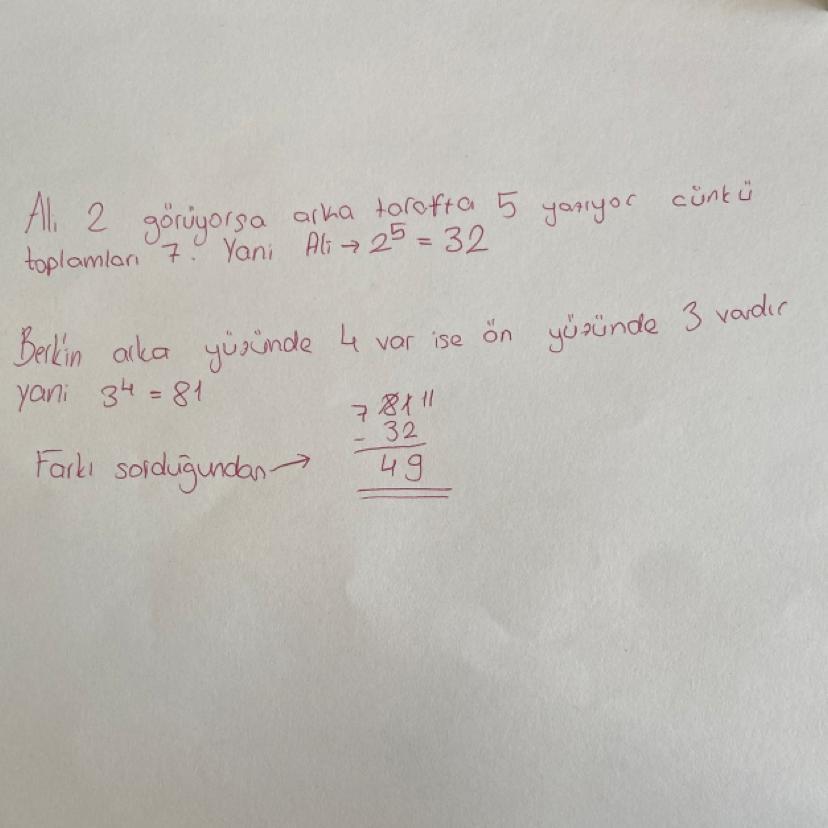 Ali 2 görüyorsa arka tarafta 5 yazıyor cünkü
toplamları 7. Yani Ali → 2⁵ = 32
Berk'in arka yüzünde 4 var ise ön yüzünde 3 vardır
yani 3⁴ = 81
7 81 11
- 32
Farkı sorduğundan →
49